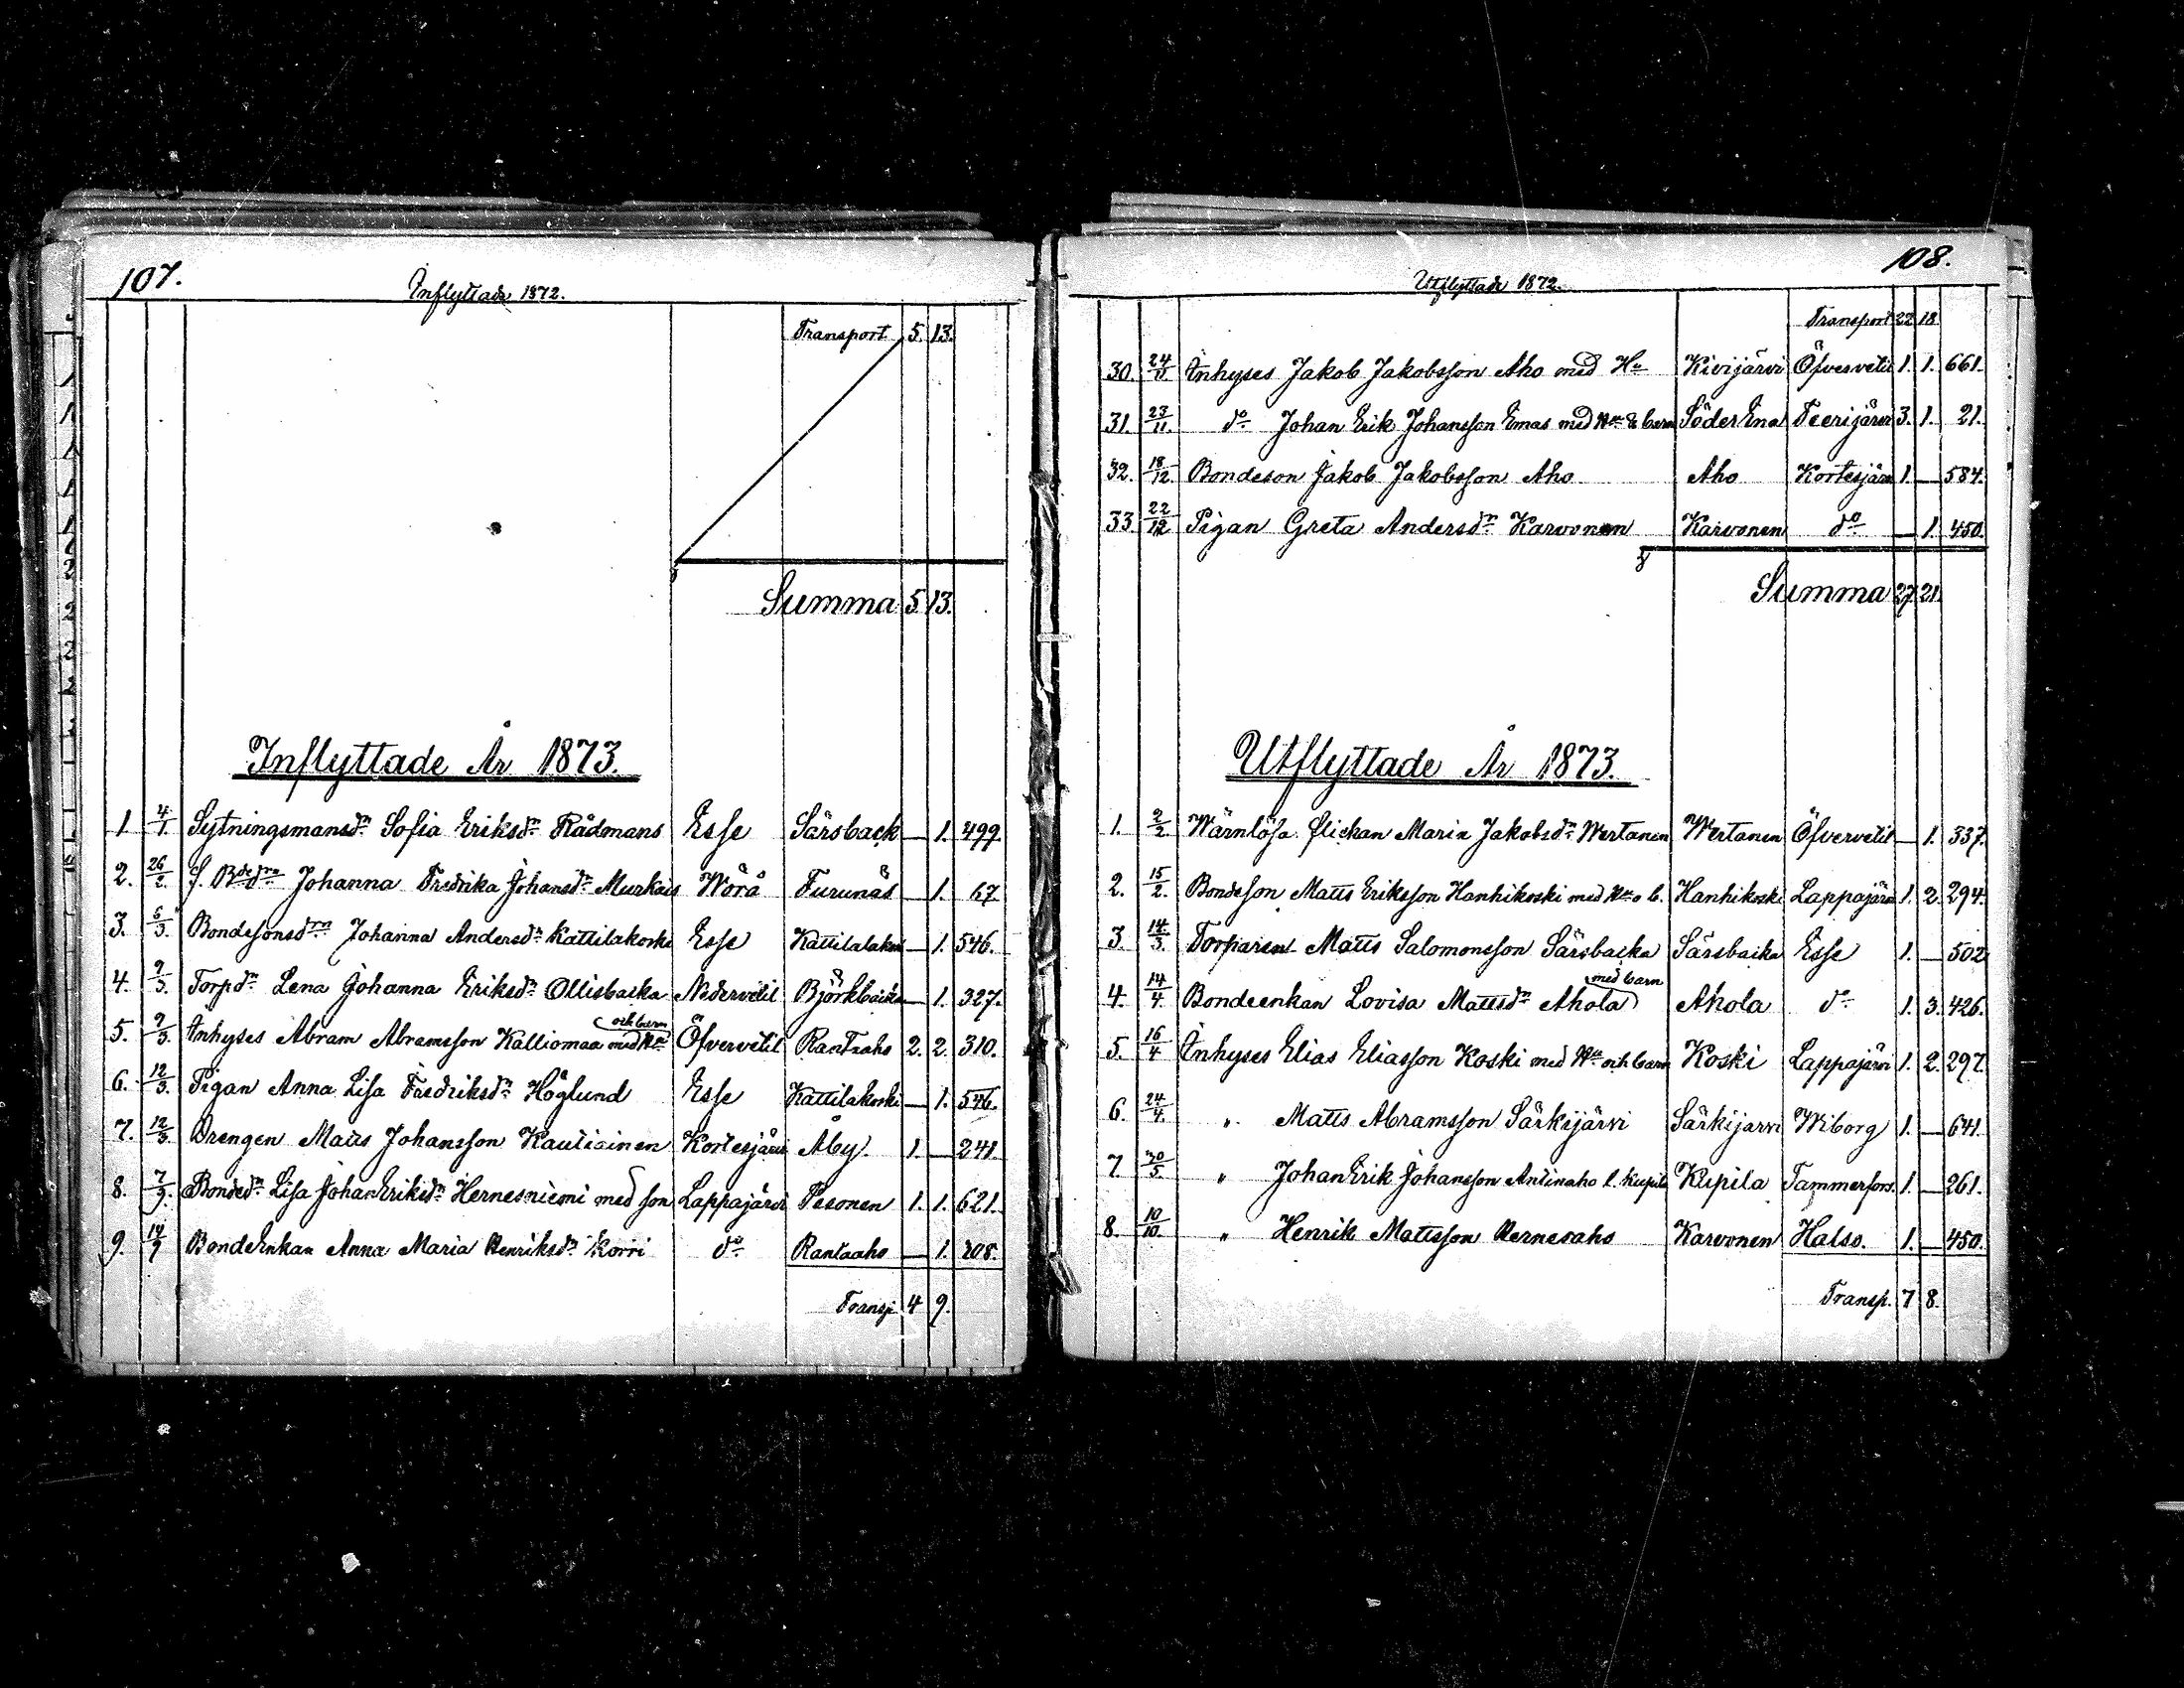 107.
Inflyttade 1872.
Transport 5. 13.
Summa 5. 13.
Inflyttade År 1873.
1. 4/1. Sytningsmansdr Sofia Eriksdr Rådmans Esse Särsback — 1. 499.
2. 26/2. f. Bdedrn Johanna Fredrika Johansdr Murkais Wörå Furunäs — 1. 67
3. 5/3. Bondesonsdrn Johanna Andersdr Kattilakoski Esse Kattilakoski — 1. 546.
4. 9/3. Torpdr Lena Johanna Eriksdr Ollisbacka Nedervetil Björkbacka — 1. 327.
5. 9/3. Inhyses Abram Abramsson Kalliomaa med Hu och barn Öfvervetil Rantaaho 2. 2. 310.
6. 12/3. Pigan Anna Lisa Fredriksdr Höglund Esse Kattilakoski — 1. 546.
7. 12/3. Drengen Matts Johansson Kautiainen Kortesjärvi Åby. 1. — 241.
8. 7/9. Bondedr Lisa JohanEriksdr Hernesniemi med son Lappajärvi Pesonen 1. 1. 621.
9. 14/9 BondeEnkan Anna Maria Henriksdr Korri do Rantaaho — 1. 208.
Transp. 4 9.
108.
Utflyttade 1872.
Transport 22 18.
30. 24/11. Inhyses Jakob Jakobsson Aho med Hu Kivijärvi Öfvervetil 1. 1. 661.
31. 23/11. do Johan Erik Johansson Emas med Hu & barn Söder Ena Teerijärvi 3. 1. 21.
32. 18/12. Bondeson Jakob Jakobsson Aho Aho Kortesjärvi 1. — 584.
33. 22/12 Pigan Greta Andersdr Karvonen Karvonen do — 1. 450.
Summa 27. 21.
Utflyttade År 1873.
1. 2/2. Wärnlösa flickan Maria Jakobsdr Wertanen Wertanen Öfvervetil — 1. 337.
2. 15/2. Bondeson Matts Eriksson Hanhikoski med Hu o b. Hanhikoski Lappajärvi 1. 2. 294.
3. 14/3. Torparen Matts Salomonsson Särsbacka Särsbacka Esse 1. — 502.
4. 14/4. Bondeenkan Lovisa Mattsdr Ahola med barn Ahola do 1. 3. 426.
5. 16/4 Inhyses Elias Eliasson Koski med Hu och barn Koski Lappajärvi 1. 2. 297.
6. 24/4. " Matts Abramsson Särkijärvi Särkijärvi Wiborg 1. — 641.
7 30/5. " JohanErik Johansson Antinaho l. Kupila Kupila Tammerfors. 1. — 261.
8. 10/10. " Henrik Mattsson Hernesaho Karvonen Halso. 1. — 450.
Transp. 7 8.